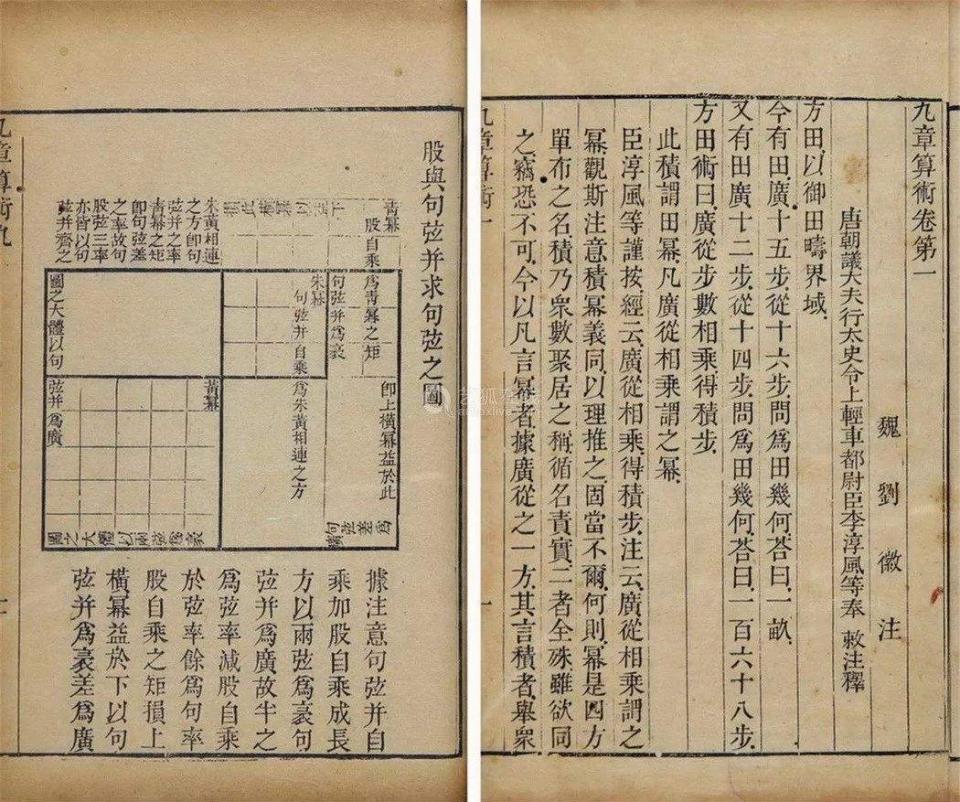 九章算術卷第一
魏劉徽注
唐朝議大夫行太史令上輕車都尉臣李淳風等奉敕注釋
方田以御田疇界域
今有田廣十五步從十六步問爲田幾何荅曰一畝
又有田廣十二步從十四步問爲田幾何荅曰一百六十八步
方田術曰廣從步數相乘得積步
此積謂田冪凡廣從相乘謂之冪
臣淳風等謹按經云廣從相乘得積步注云廣從相乘謂之
冪觀斯注意積冪義同以理推之固當不爾何則冪是四方
單布之名積乃衆數聚居之稱循名責實二者全殊雖欲同
之竊恐不可今以凡言冪者據廣從之一方其言積者舉衆
九章算術一
股與句弦并求句弦之圖
青冪
股自乘
爲青冪之矩
卽上橫冪益於此
句弦差爲
句弦并爲袤
朱冪
句弦并自乘
爲朱黃相連之方
朱黃相連
之方卽句
弦并之率
青冪之矩
卽句弦差
之率故句
股弦三率
亦皆以句
弦并齊之
黃冪
圖之大體以句
弦并爲廣
圖之大體以兩弦爲袤
據注意句弦并自
乘加股自乘成長
方以兩弦爲袤句
弦并爲廣故半之
爲弦率減股自乘
於弦率餘爲句率
股自乘之矩損上
橫冪益於下以句
弦并爲袤差爲廣
九章算術九